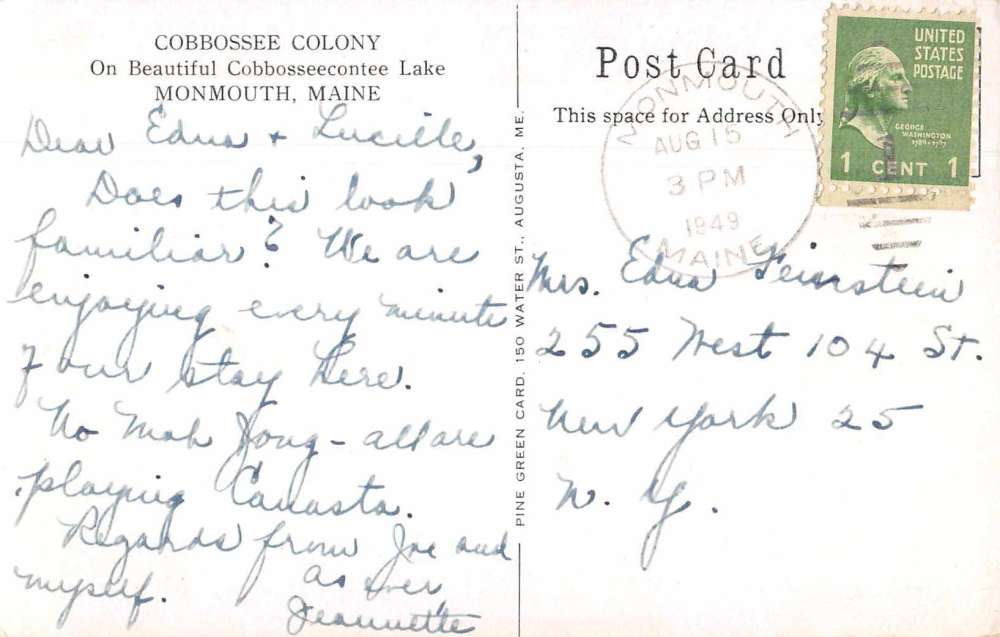 COBBOSSEE COLONY
On Beautiful Cobbosseecontee Lake
MONMOUTH, MAINE
Dear Edna + Lucille,
Does this look
familiar? We are
enjoying every minute
of our stay here.
No Mah Jong - all are
playing Canasta.
Regards from Joe and
myself.
As ever,
Jeannette
PINE GREEN CARD. 150 WATER ST., AUGUSTA, ME.
Post Card
This space for Address Only
MONMOUTH
AUG 15
3 PM
1949
MAINE
UNITED
STATES
POSTAGE
GEORGE
WASHINGTON
1789-1797
1 CENT 1
Mrs. Edna Feinstein
255 West 104 St.
New York 25
N. Y.